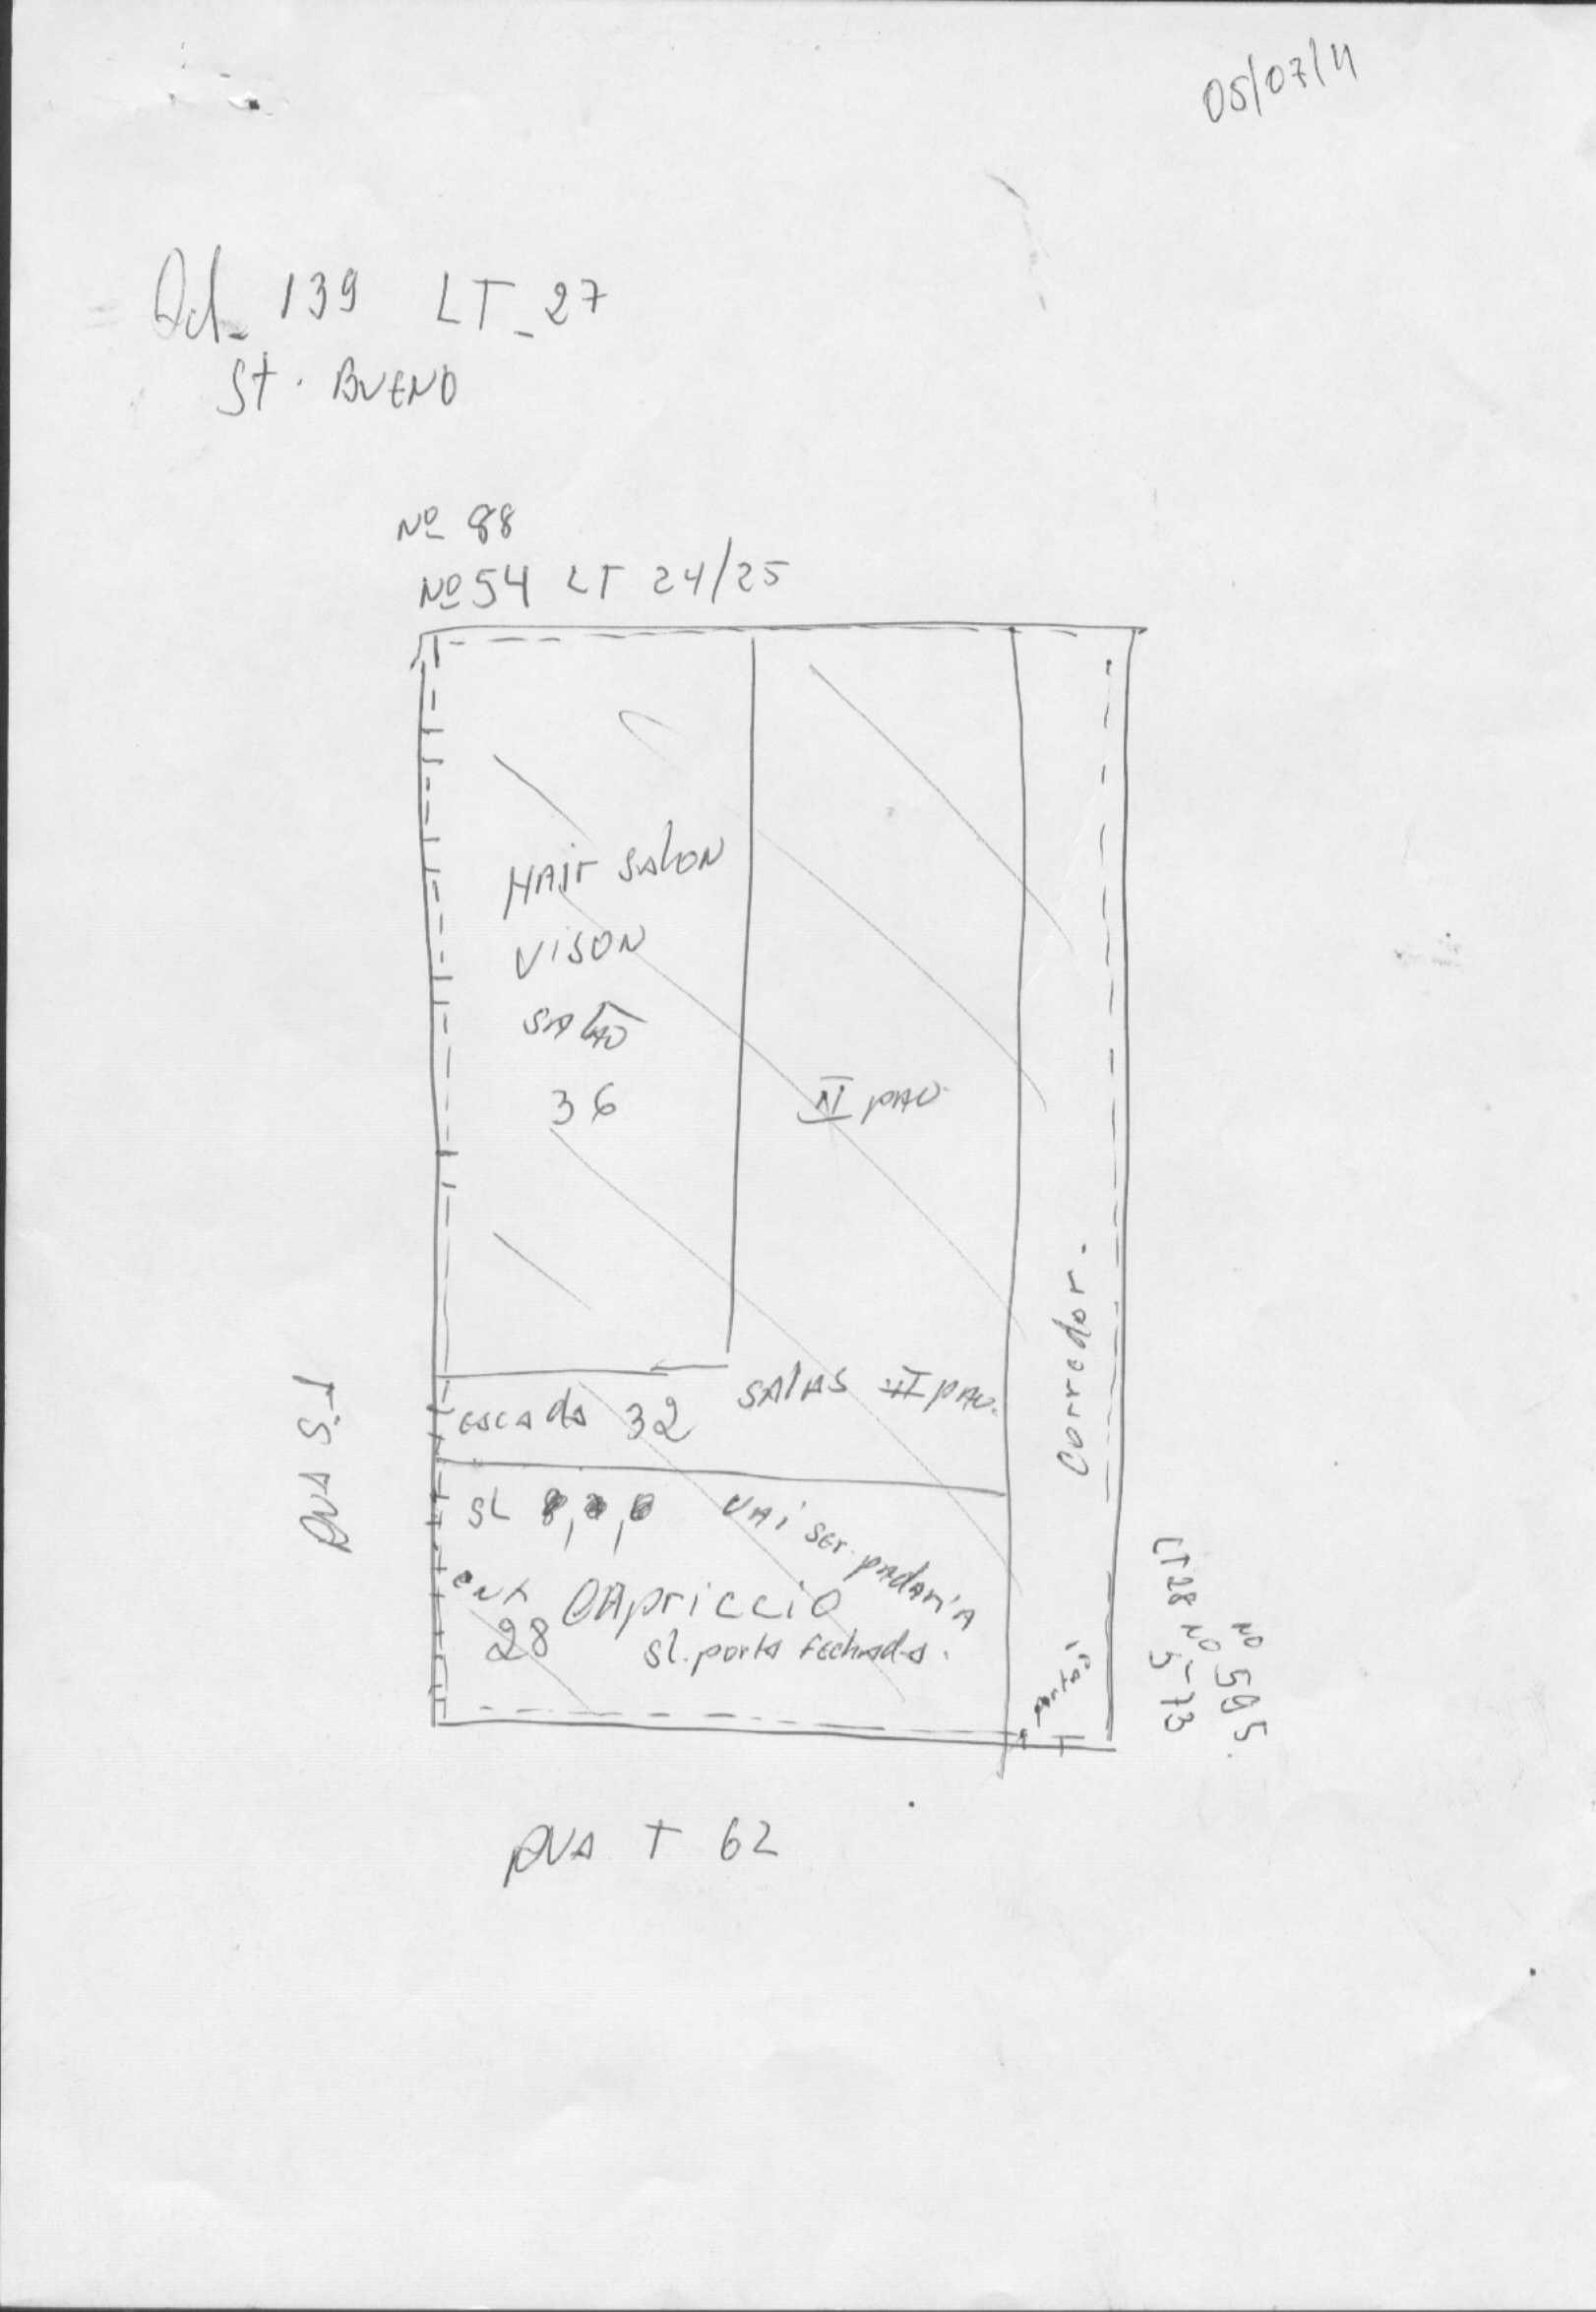 05/07/11
Qd_ 139 LT_27
St. BUENO
Nº 88
Nº 54 LT 24/25
HAir SAlON
VISON
SAlãO
36
II pAV.
Corredor.
escada 32
SAlAS II pAV.
SL
VAi ser padaria
ent
28
CApriccio
sl. porta fechada.
portão
RUA S.1
LT 28 Nº 573
Nº 595
RUA T 62